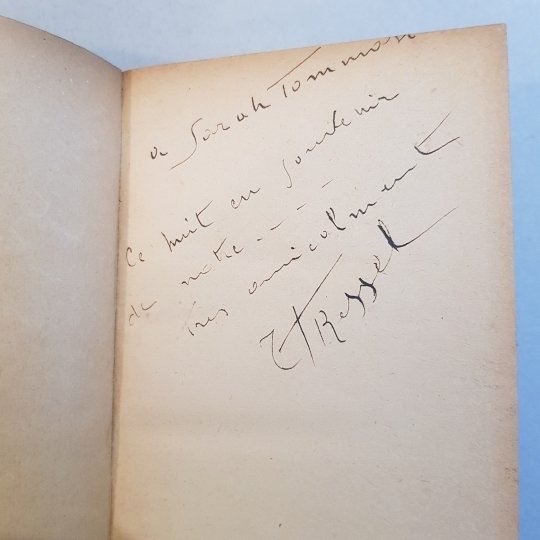 a Sarah Tommasi
Ce huit en souvenir
de notre - - - -
très amicalement
J Kessel